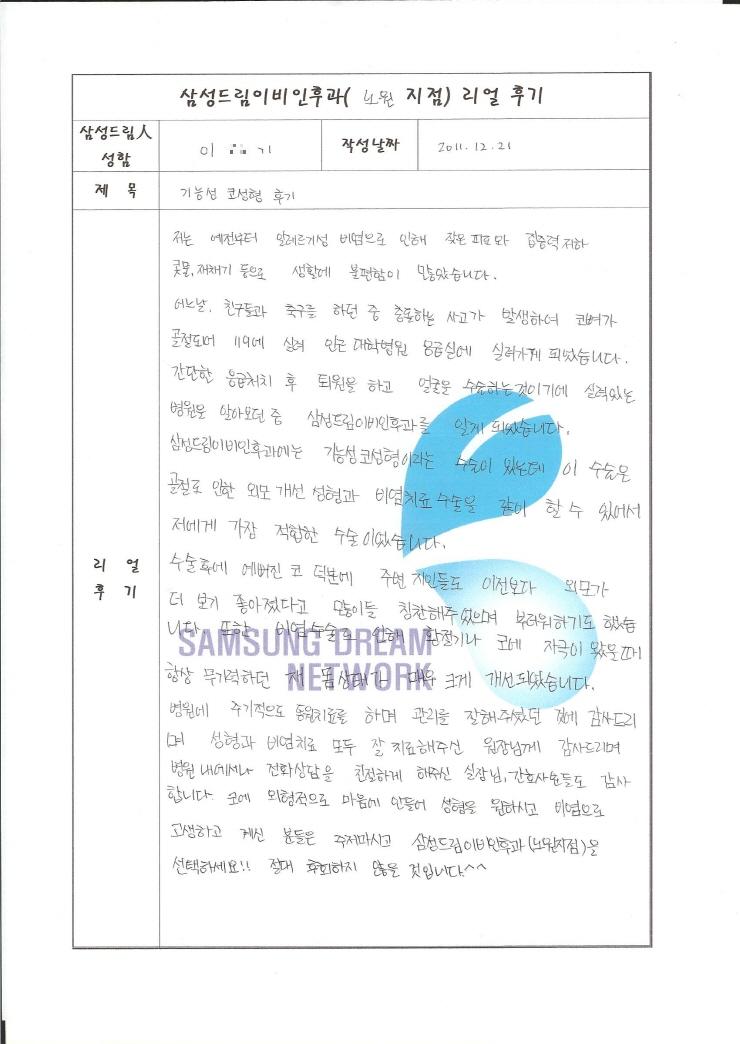 삼성드림이비인후과( 노원 지점) 리얼 후기
삼성드림人
성함
이 기
작성날짜
2011. 12. 21
제 목
기능성 코성형 후기
리 얼
후 기
저는 예전부터 알레르기성 비염으로 인해 잦은 피로와 집중력저하
콧물, 재채기 등으로 생활에 불편함이 많았습니다.
어느날, 친구들과 축구를 하던 중 충돌하는 사고가 발생하여 코뼈가
골절되어 119에 실려 인근 대학병원 응급실에 실려가게 되었습니다.
간단한 응급처치 후 퇴원을 하고 얼굴을 수술하는것이기에 실력있는
병원을 알아보던 중 삼성드림이비인후과를 알게 되었습니다.
삼성드림이비인후과에는 기능성코성형이라는 수술이 있는데 이 수술은
골절로 인한 외모 개선 성형과 비염치료 수술을 같이 할 수 있어서
저에게 가장 적합한 수술이었습니다.
수술후에 예뻐진 코 덕분에 주변 지인들도 이전보다 외모가
더 보기 좋아졌다고 많이들 칭찬해주었으며 부러워하기도 했습
니다. 또한 비염수술로 인해 환절기나 코에 자극이 왔을때
SAMSUNG DREAM
NETWORK
항상 무기력하던 제 몸상태가 매우 크게 개선되었습니다.
병원에 주기적으로 통원치료를 하며 관리를 잘해주셨던 것에 감사드리
며 성형과 비염치료 모두 잘 치료해주신 원장님께 감사드리며
병원 내에서나 전화상담을 친절하게 해주신 실장님, 간호사분들도 감사
합니다. 코에 외형적으로 마음에 안들어 성형을 원하시고 비염으로
고생하고 계신 분들은 주저마시고 삼성드림이비인후과(노원지점)을
선택하세요!! 절대 후회하지 않을 것입니다.^^